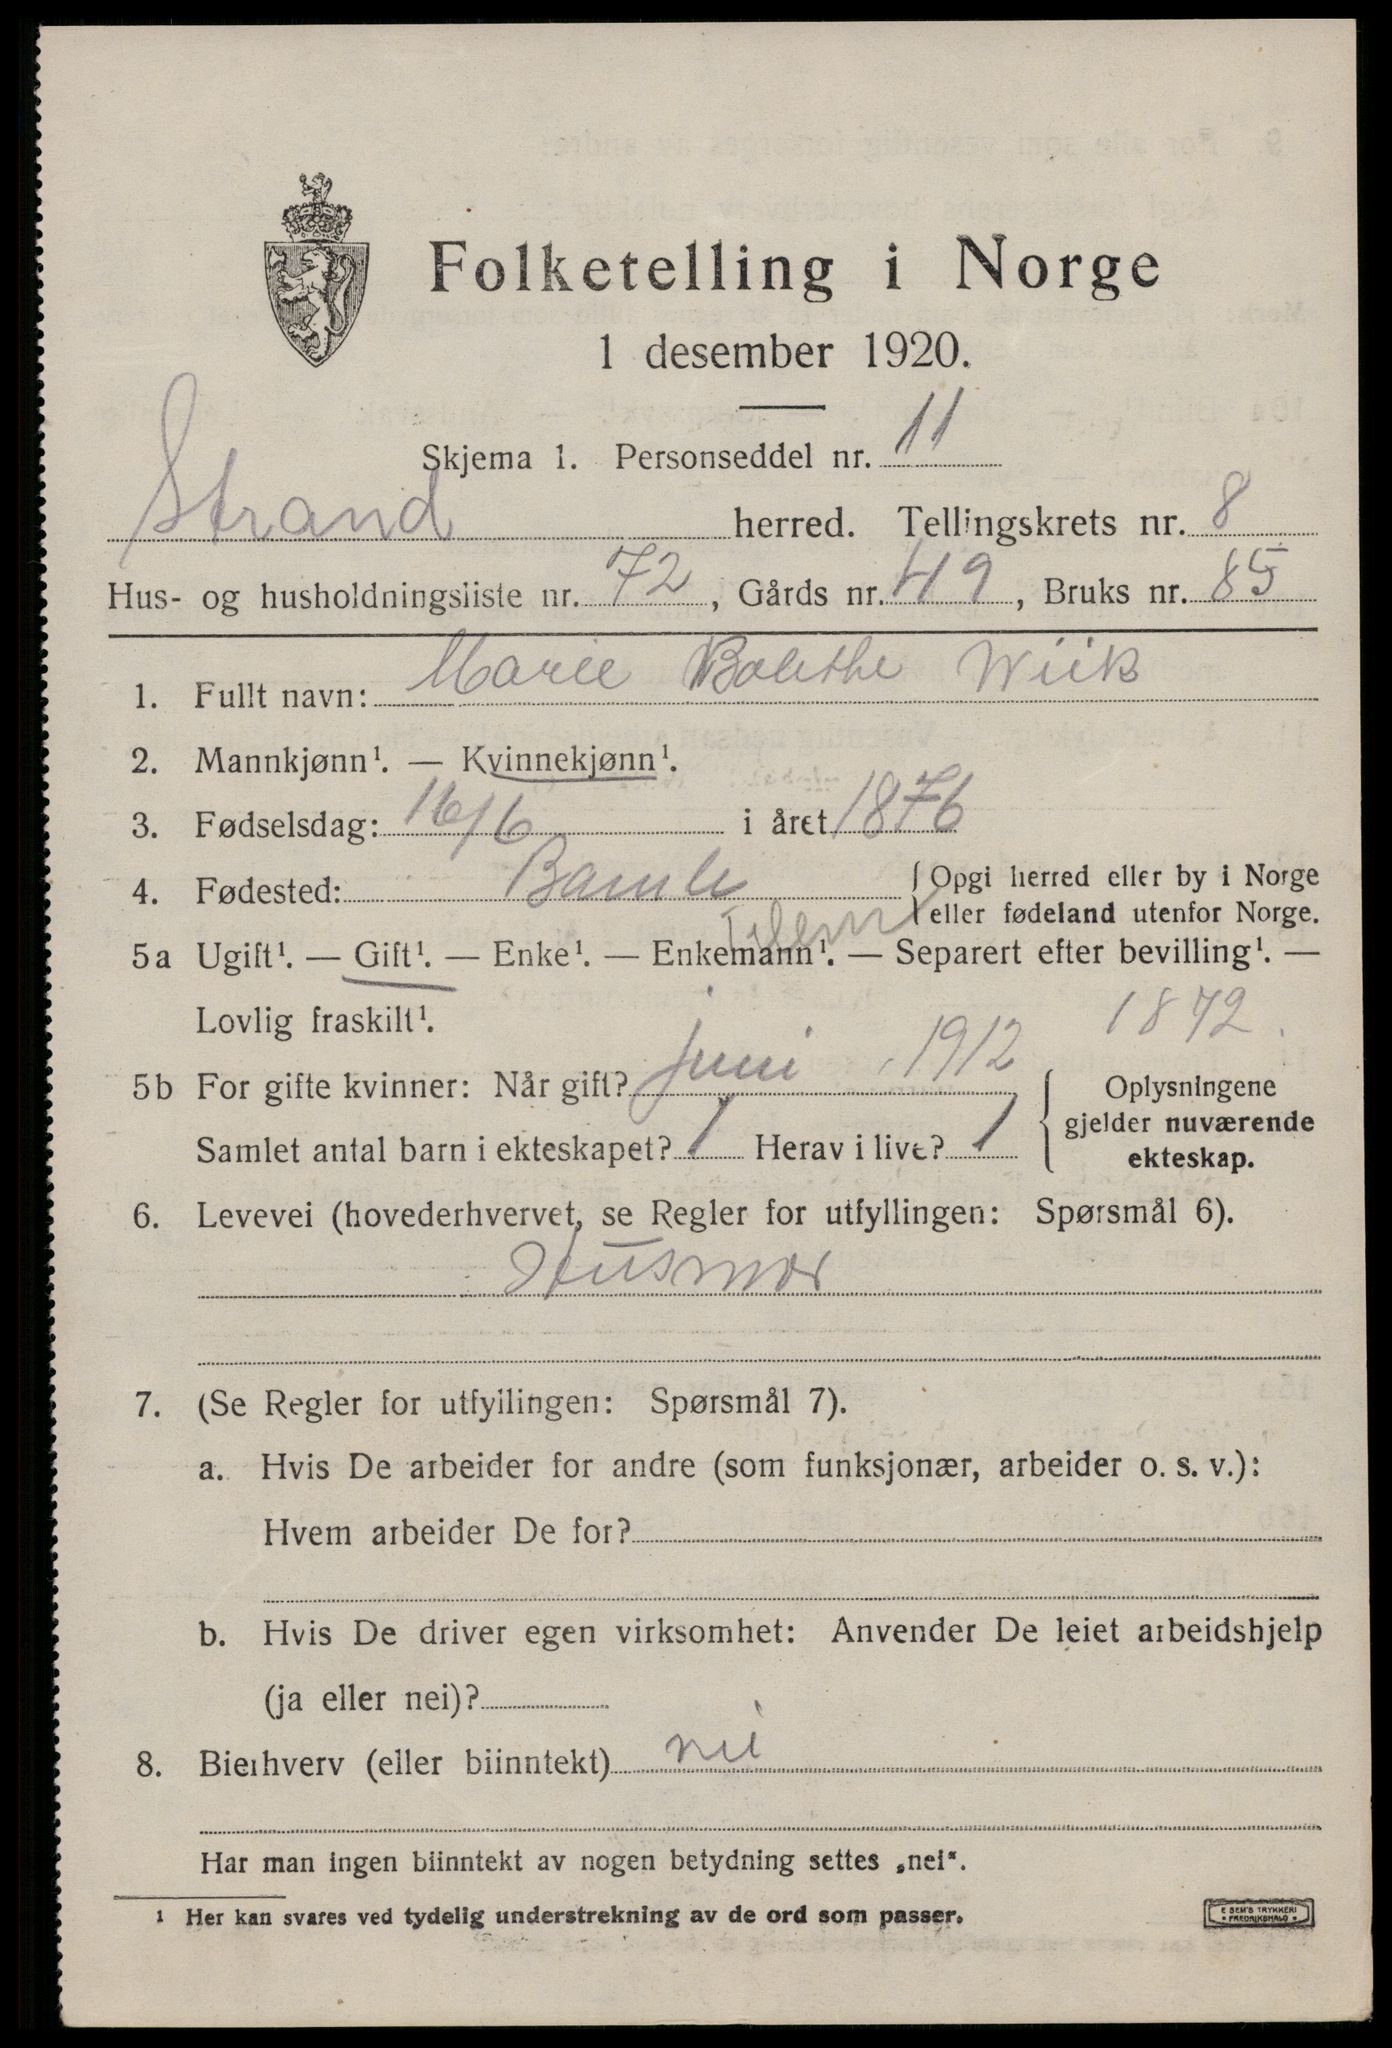 Folketelling i Norge
1 desember 1920.
Skjema 1. Personseddel nr. 11
Strand herred. Tellingskrets nr. 8
Hus- og husholdningsliste nr. 72, Gårds nr. 49, Bruks nr. 85
1. Fullt navn: Marie Bolethe Wiik
2. Mannkjønn¹. — Kvinnekjønn¹.
3. Fødselsdag: 16/6 i året 1876
4. Fødested: Bamle
Opgi herred eller by i Norge
eller fødeland utenfor Norge.
5a Ugift¹. — Gift¹. — Enke¹. — Enkemann¹. — Separert efter bevilling¹. —
Lovlig fraskilt¹.
1872.
5b For gifte kvinner: Når gift? juni 1912
Samlet antal barn i ekteskapet? 1 Herav i live? 1
Oplysningene
gjelder nuværende
ekteskap.
6. Levevei (hovederhvervet, se Regler for utfyllingen: Spørsmål 6).
Husmor
7. (Se Regler for utfyllingen: Spørsmål 7).
a. Hvis De arbeider for andre (som funksjonær, arbeider o. s. v.):
Hvem arbeider De for?
b. Hvis De driver egen virksomhet: Anvender De leiet arbeidshjelp
(ja eller nei)?
8. Bierhverv (eller biinntekt) nei
Har man ingen biinntekt av nogen betydning settes „nei“.
¹ Her kan svares ved tydelig understrekning av de ord som passer.
E SEM'S TRYKKERI
FREDRIKSHALD